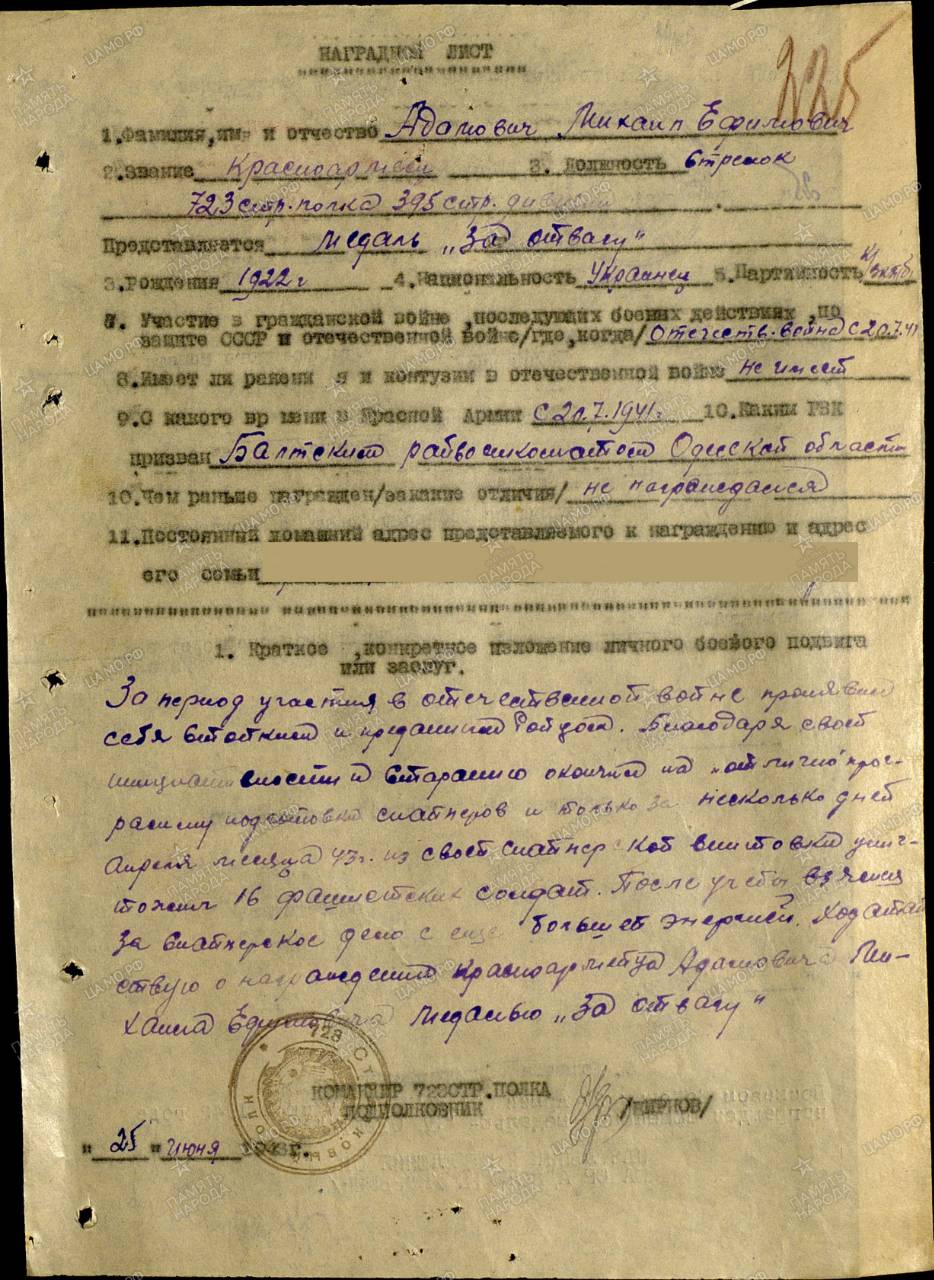 225
НАГРАДНОЙ ЛИСТ
1.Фамилия,имя и отчество Адамович Михаил Ефимович
2.Звание Красноармеец 3. Должность Стрелок
723 стр. полка 395 стр. дивизии
Представляется медаль „За отвагу"
3.Рождения 1922 г 4.Национальность Украинец 5.Партийность
7. Участие в гражданской войне ,последующих боевих действиях ,по
защите СССР и отечественной войне/где,когда/ Отечеств. война с 20.7.41
8.Имеет ли ранени я и контузии в отечественной войне не имеет
9.С какого вр мени в Красной Армии с 20.7.1941г 10.Каким РВК
призван Балтским райвоенкоматом Одесской области
10.Чем раньше награжден/закакие отличия/ не награждался
11.Постоянный домашний адрес представляемого к награждению и адрес
его семьи
1. Краткое ,конкретное изложение личного боевого подвига
или заслуг.
За период участия в отечественной войне проявил
себя стойким и преданным бойцом. Благодаря своей
инициативности и старанию окончил на „отлично" прог-
рамму подготовки снайперов и только за несколько дней
апреля месяца 43г. из своей снайперской винтовки унич-
тожил 16 фашистских солдат. После учебы взялся
за снайперское дело с еще большей энергией. Ходатай
ствую о награждении красноармейца Адамовича Ми-
хаила Ефимовича медалью „За отвагу"
КОМАНДИР 723СТР.ПОЛКА
ПОДПОЛКОВНИК /ЧИРКОВ/
"25" июня 1943г.
723 Стрелковый полк